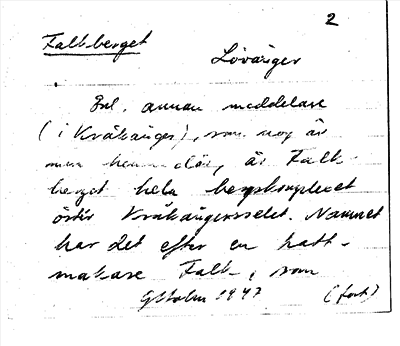 2
Falkberget
Lövånger
Enl. annan meddelare
(i Kråkånger), som nog är
mera hemma där, är Falk-
berget hela bergskomplexet
öster Kråkångersselet. Namnet
har det efter en hatt-
makare Falk, som
G Holm 1947 (forts)